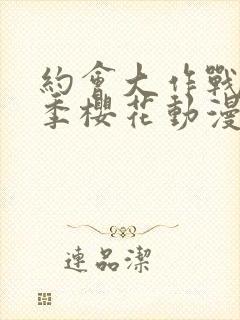 約會大作戰
季櫻花動漫
連品潔